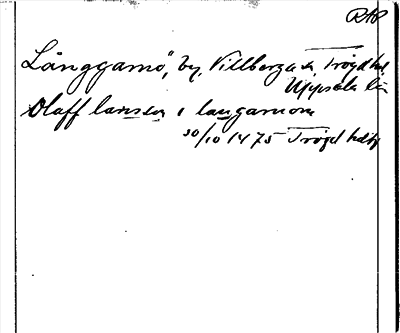 RAP
Långgarnö, by, Villberga sn, Trögds hd
Uppsala län
Olaff larsson i langarnom
30/10 1475 Trögd hdbf